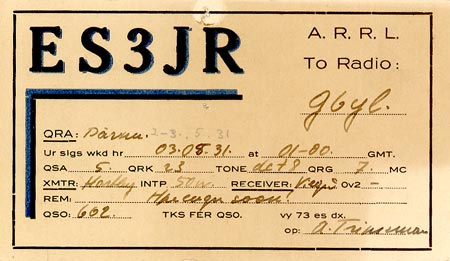 ES3JR
A. R. R. L.
To Radio:
g6yl.
QRA: Pärnu. 2-3. 5. 31
Ur sigs wkd hr 03.05.31. at 01-00. GMT.
QSA 5. QRK TONE dc78 QRG 7. MC
XMTR: Hartley INTP 50w. RECEIVER: 0v2 –
REM: soon!
QSO: 602. TKS FER QSO. vy 73 es dx.
op: A.